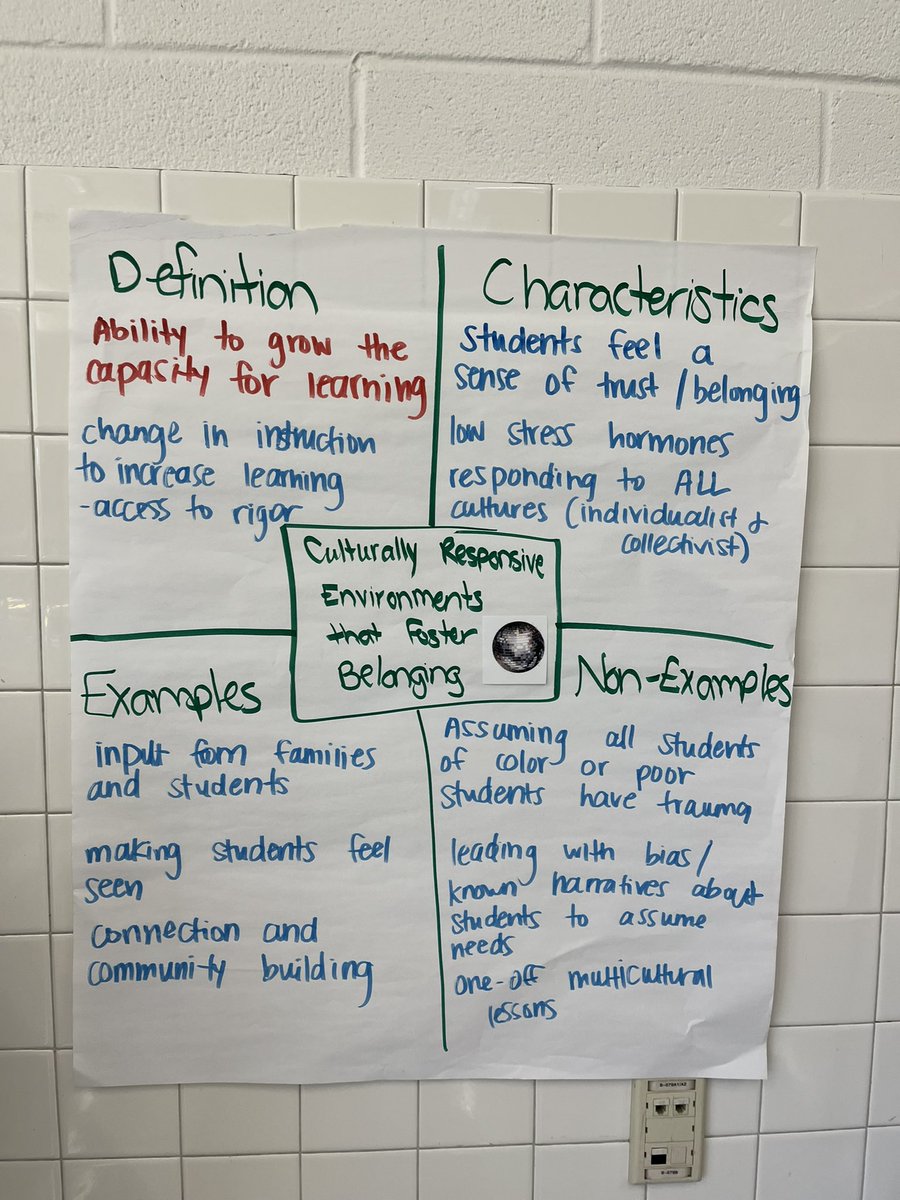 Definition
Ability to grow the
capacity for learning
change in instruction
to increase learning
-access to rigor
Characteristics
students feel a
sense of trust / belonging
low stress hormones
responding to ALL
cultures (individualist &
collectivist)
Culturally Responsive
Environments
that Foster
Belonging
Examples
input form families
and students
making students feel
seen
connection and
community building
Non-Examples
Assuming all students
of color or poor
students have trauma
leading with bias/
known narratives about
students to assume
needs
one-off multicultural
lessons